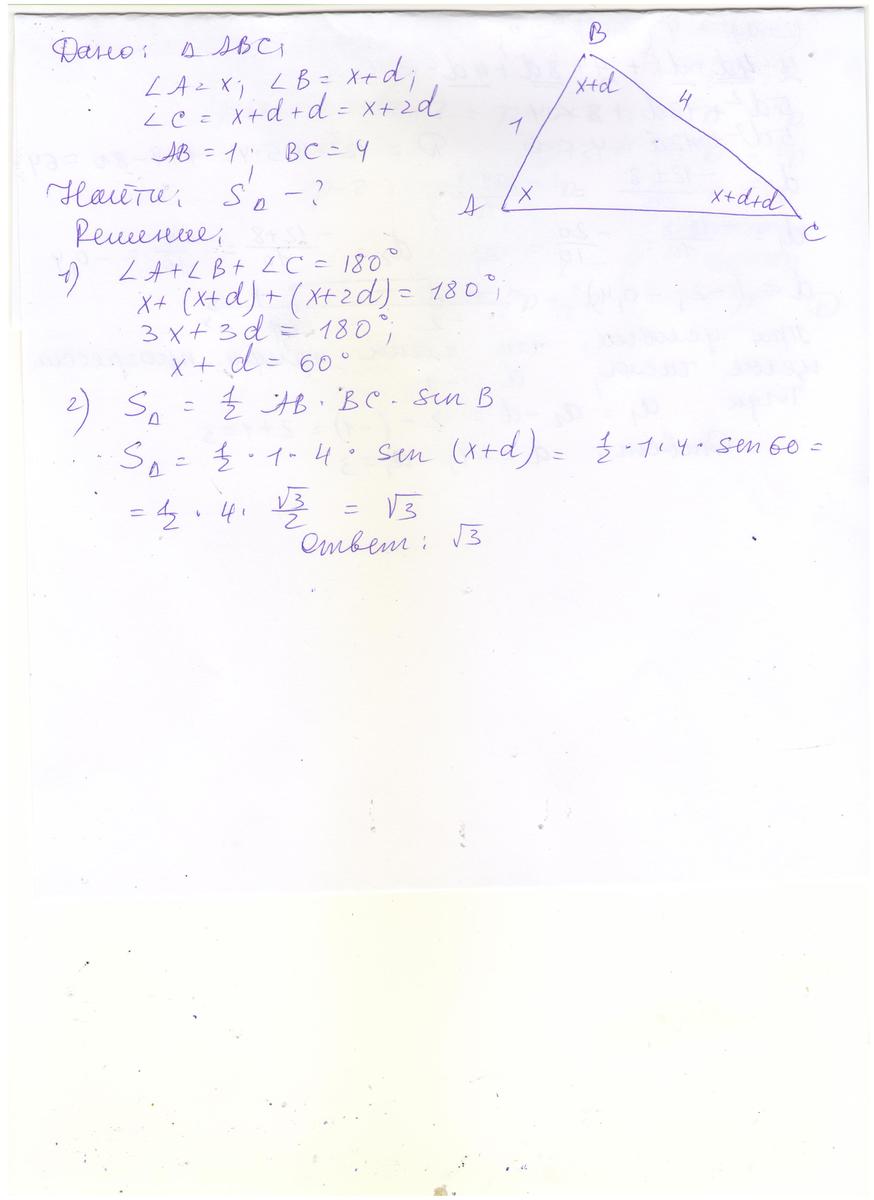 Дано: Δ ABC;
∠A = x; ∠B = x+d;
∠C = x+d+d = x+2d
AB = 1; BC = 4
Найти: S_Δ - ?
Решение:
1) ∠A+∠B+∠C = 180°
x+(x+d)+(x+2d) = 180°;
3x+3d = 180°;
x+d = 60°
2) S_Δ = 1/2 AB · BC · sin B
S_Δ = 1/2 · 1 · 4 · sin (x+d) = 1/2 · 1 · 4 · sin 60 =
= 1/2 · 4 · √3/2 = √3
Ответ: √3
B
x+d
4
1
A
x
x+d+d
C